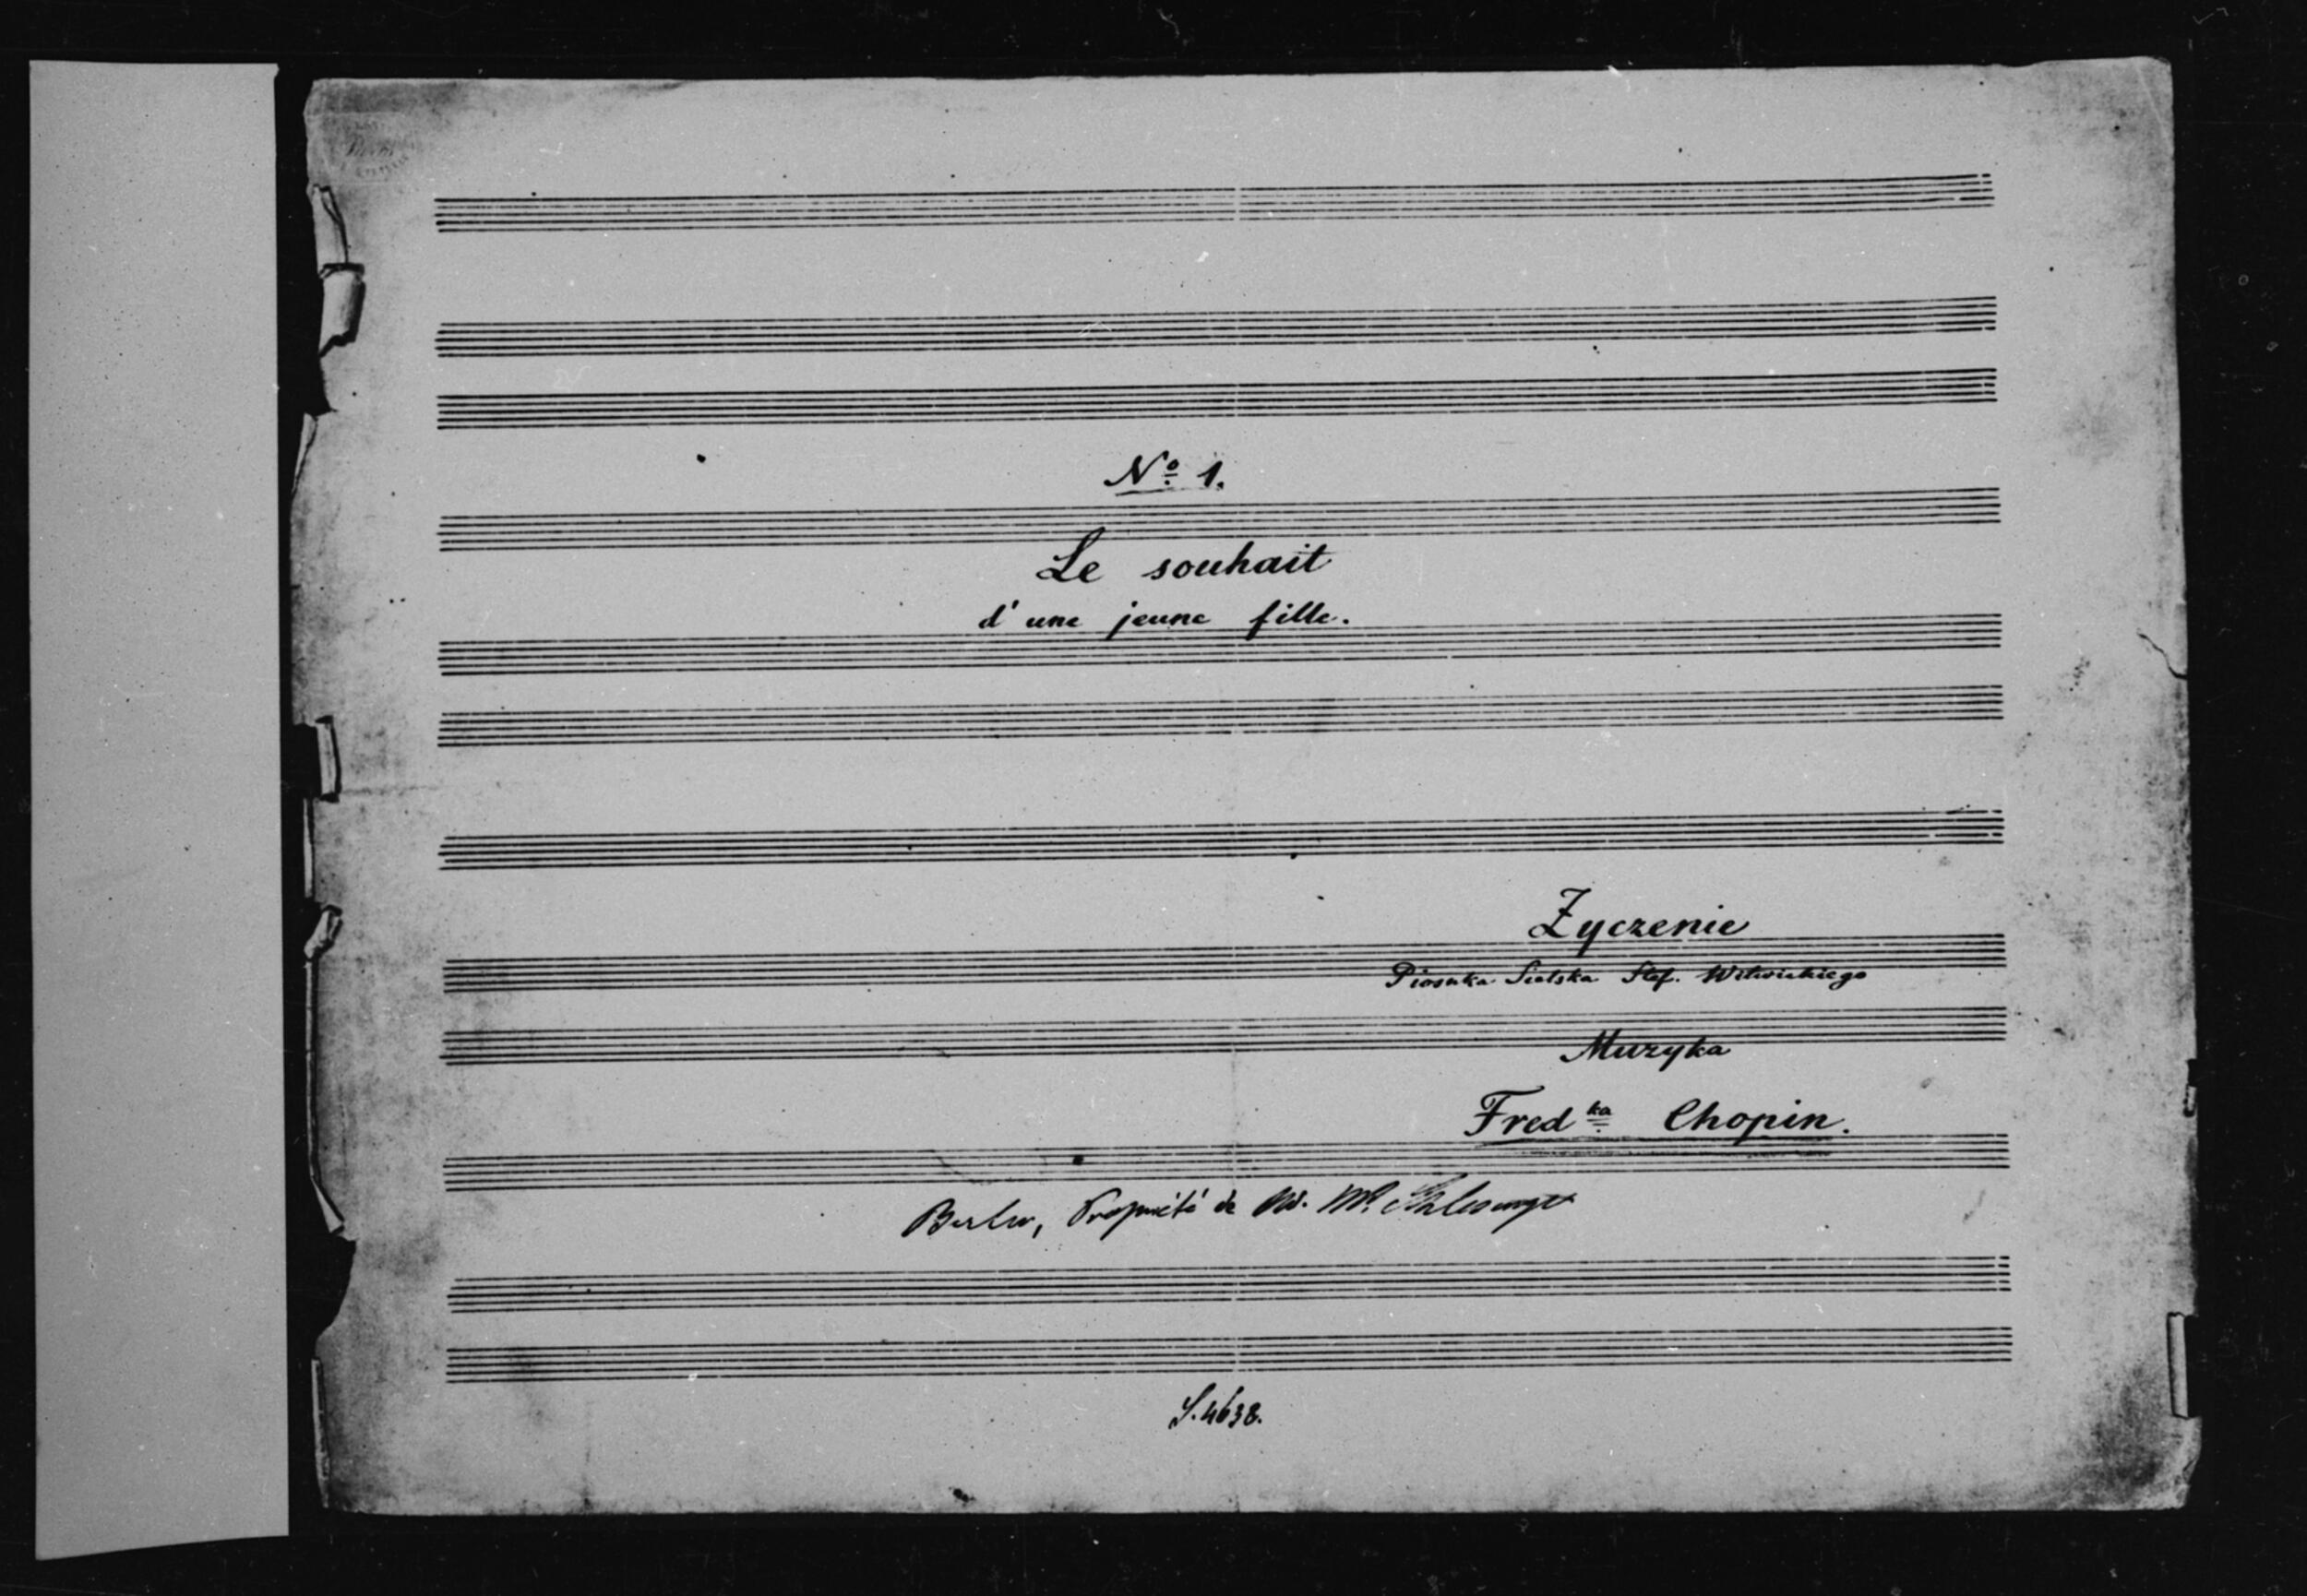 Nº 1.
Le souhait
d'une jeune fille.
Życzenie
Piosnka Sielska Stef. Witwickiego
Muzyka
Fred ka Chopin.
Berlin, Propriété de Ad. Mt. Schlesinger
S. 4638.